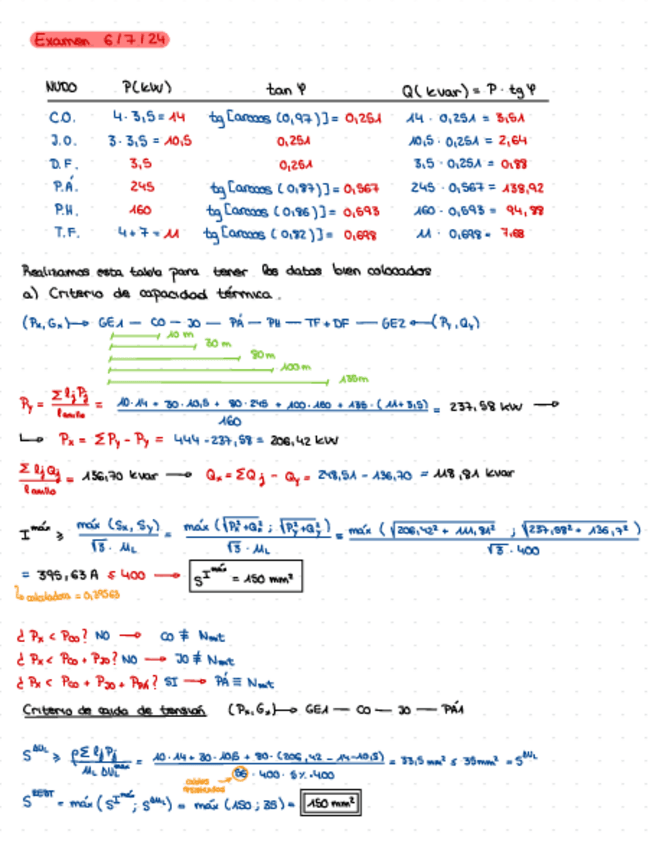 Examen 6/7/24
NUDO P(kW) tan φ Q(kvar) = P · tg φ
C.O. 4 · 3,5 = 14 tg [arccos (0,97)] = 0,251 14 · 0,251 = 3,51
J.O. 3 · 3,5 = 10,5 0,251 10,5 · 0,251 = 2,64
D.F. 3,5 0,251 3,5 · 0,251 = 0,88
P.Á. 245 tg [arccos (0,87)] = 0,567 245 · 0,567 = 138,92
P.H. 160 tg [arccos (0,86)] = 0,593 160 · 0,593 = 94,88
T.F. 4+7 = 11 tg [arccos (0,82)] = 0,698 11 · 0,698 = 7,68
Realizamos esta tabla para tener los datos bien colocados
a) Criterio de capacidad térmica.
(Px,Gx) → GE1 — CO — JO — PÁ — PH — TF+DF — GE2 ← (Py,Qy)
10 m
30 m
80 m
100 m
135 m
Py = Σ lj Pj / l anillo = 10·14 + 30·10,5 + 80·245 + 100·160 + 135·(11+3,5) / 160 = 237,58 kW →
↳ Px = ΣPy - Py = 444 - 237,58 = 206,42 kW
Σ lj Qj / l anillo = 136,70 kvar → Qx = ΣQj - Qy = 248,51 - 136,70 = 118,81 kvar
I máx ≥ máx (Sx, Sy) / √3 · UL = máx (√Px²+Qx² ; √Py²+Qy²) / √3 · UL = máx (√206,42² + 111,81² ; √237,58² + 136,7²) / √3 · 400
= 395,63 A ≤ 400 → S I máx = 150 mm²
↳ calculadora = 0,39563
¿ Px < Pco? NO → CO ≢ Nmt
¿ Px < Pco + PJO? NO → JO ≢ Nmt
¿ Px < Pco + PJO + PPÁ? SI → PÁ ≡ Nmt
Criterio de caida de tensión (Px,Gx) → GE1 — CO — JO — PÁ1
S ΔUL ≥ ρ Σ lj Pj / UL ΔUL máx = 10·14 + 30·10,5 + 80·(206,42 - 14 - 10,5) / 56 · 400 · 5% · 400 = 33,5 mm² ≤ 35 mm² = S ΔUL
S REBT = máx (S I máx ; S ΔUL) = máx (150 ; 35) = 150 mm²